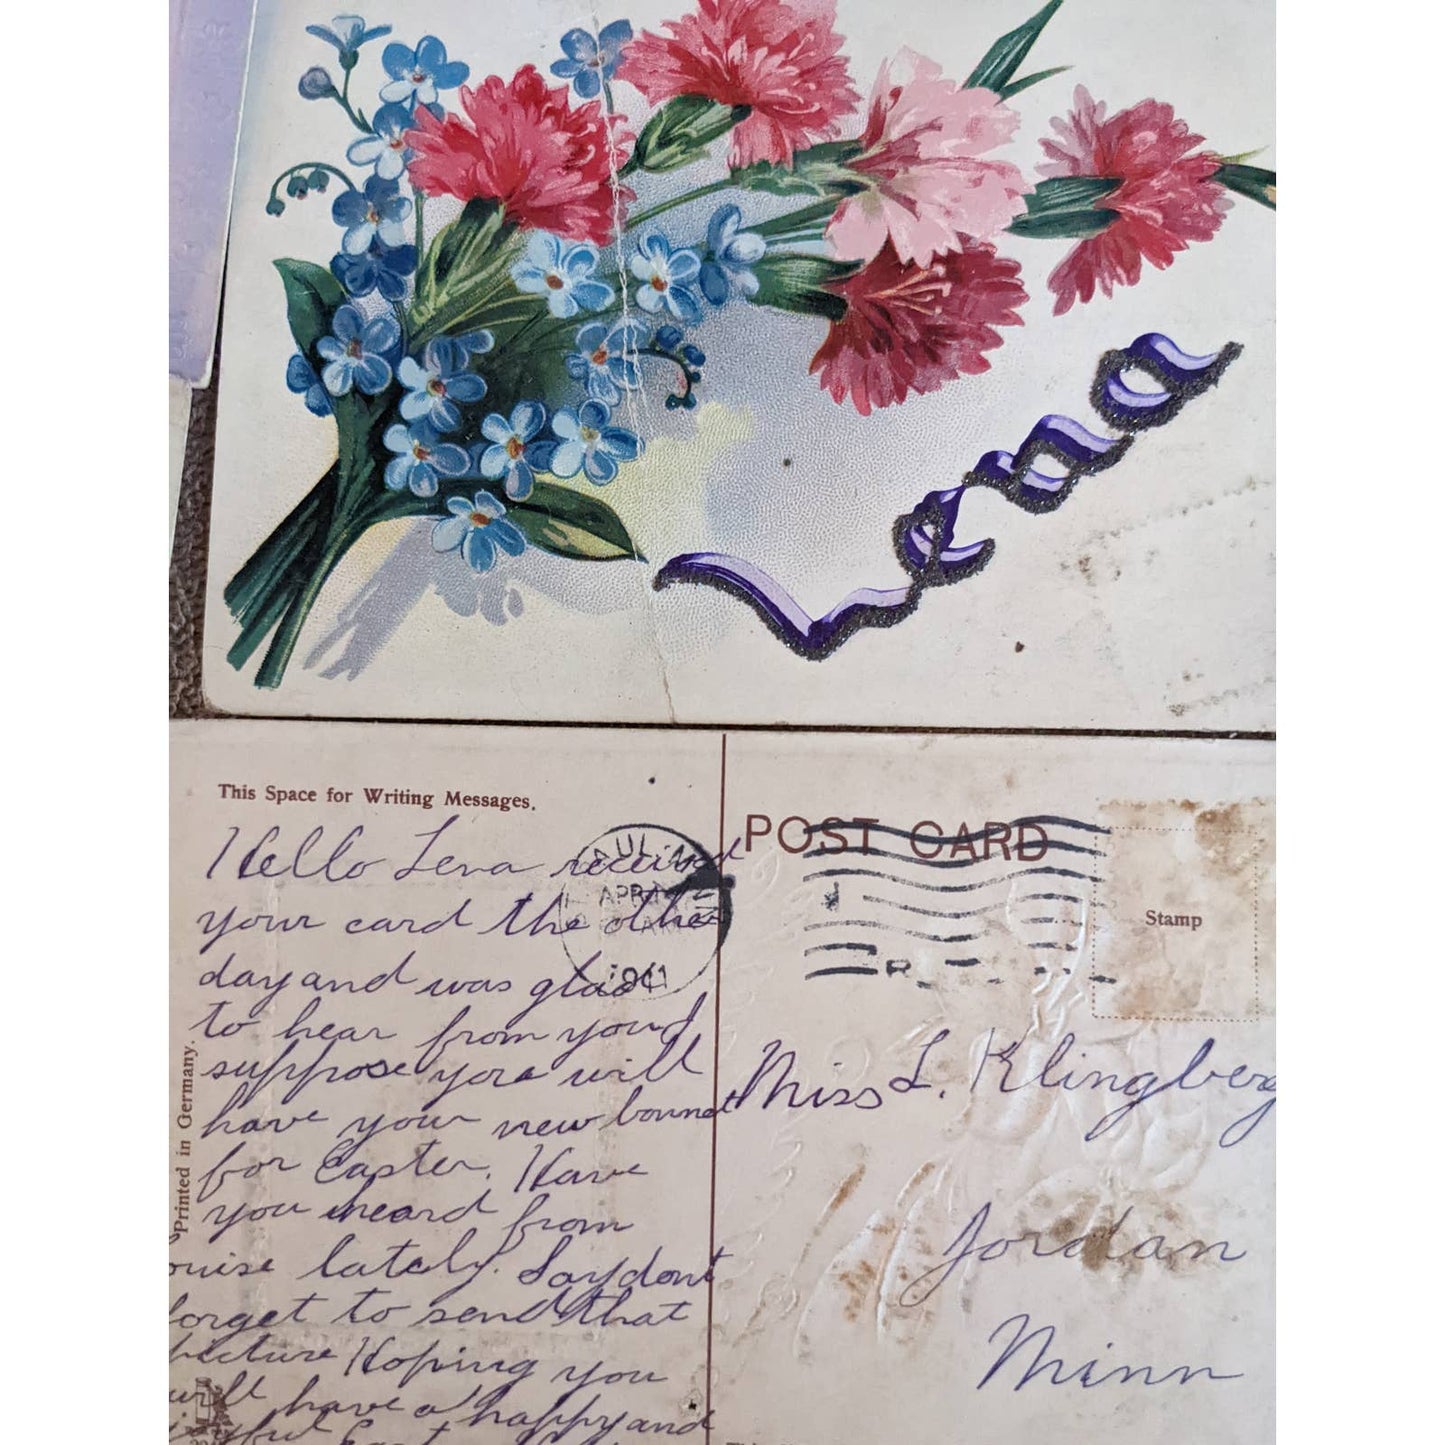 Lena
This Space for Writing Messages.
Hello Lena received
your card the other
day and was glad
to hear from you I
suppose you will
have your new bonnet
for Easter. Have
you heard from
ouise lately. Say dont
forget to send that
picture Hoping you
will have a happy and
joyful
Printed in Germany.
PAUL
APR
1911
POST CARD
Stamp
Miss L. Klingberg
Jordan
Minn